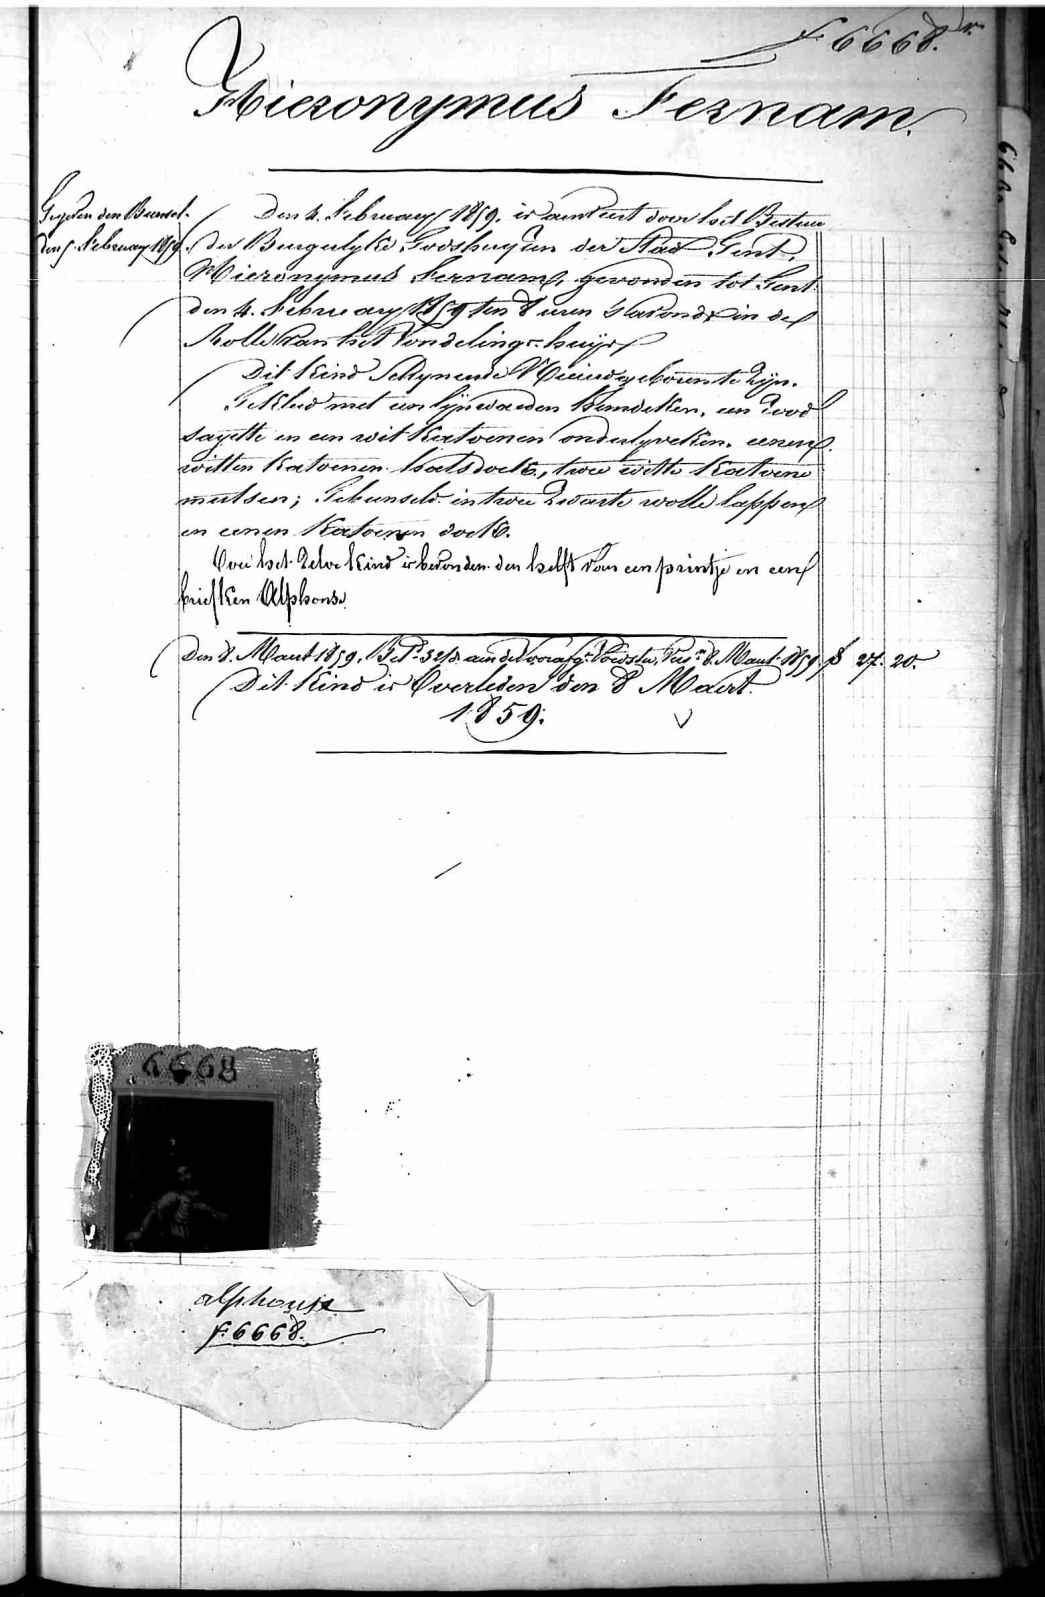 f. 6668. v.
Hieronymus Fernam.
Den 4. February 1859. is aenveert door het Bestuer
den 5. February 1859.
der Burgerlyke Godshuyzen der Stad Gent,
Hieronymus Fernam, gevonden tot Gent
den 4. February 1859 ten 8 uren 's avonds in de
Rolle van het Vondelingshuys
Dit kind schynende Nieuwgeboren te zyn.
Gekleed met een lynwaeden hemdeken, een rood
sayette en een wit katoenen onderlyveken, eenen
witten katoenen halsdoek, twee witte katoene
mutsen; Gebunseld in twee zwarte wolle lappen
en eenen katoenen doek.
Over het zelve kind is bevonden den helft van een printje en een
briefken Alphonse
Den 8. Maert 1859. 8. Maert 1859 27. 20.
Dit Kind is Overleden den 8 Maert.
1859.
6668
alphonse
f. 6668.